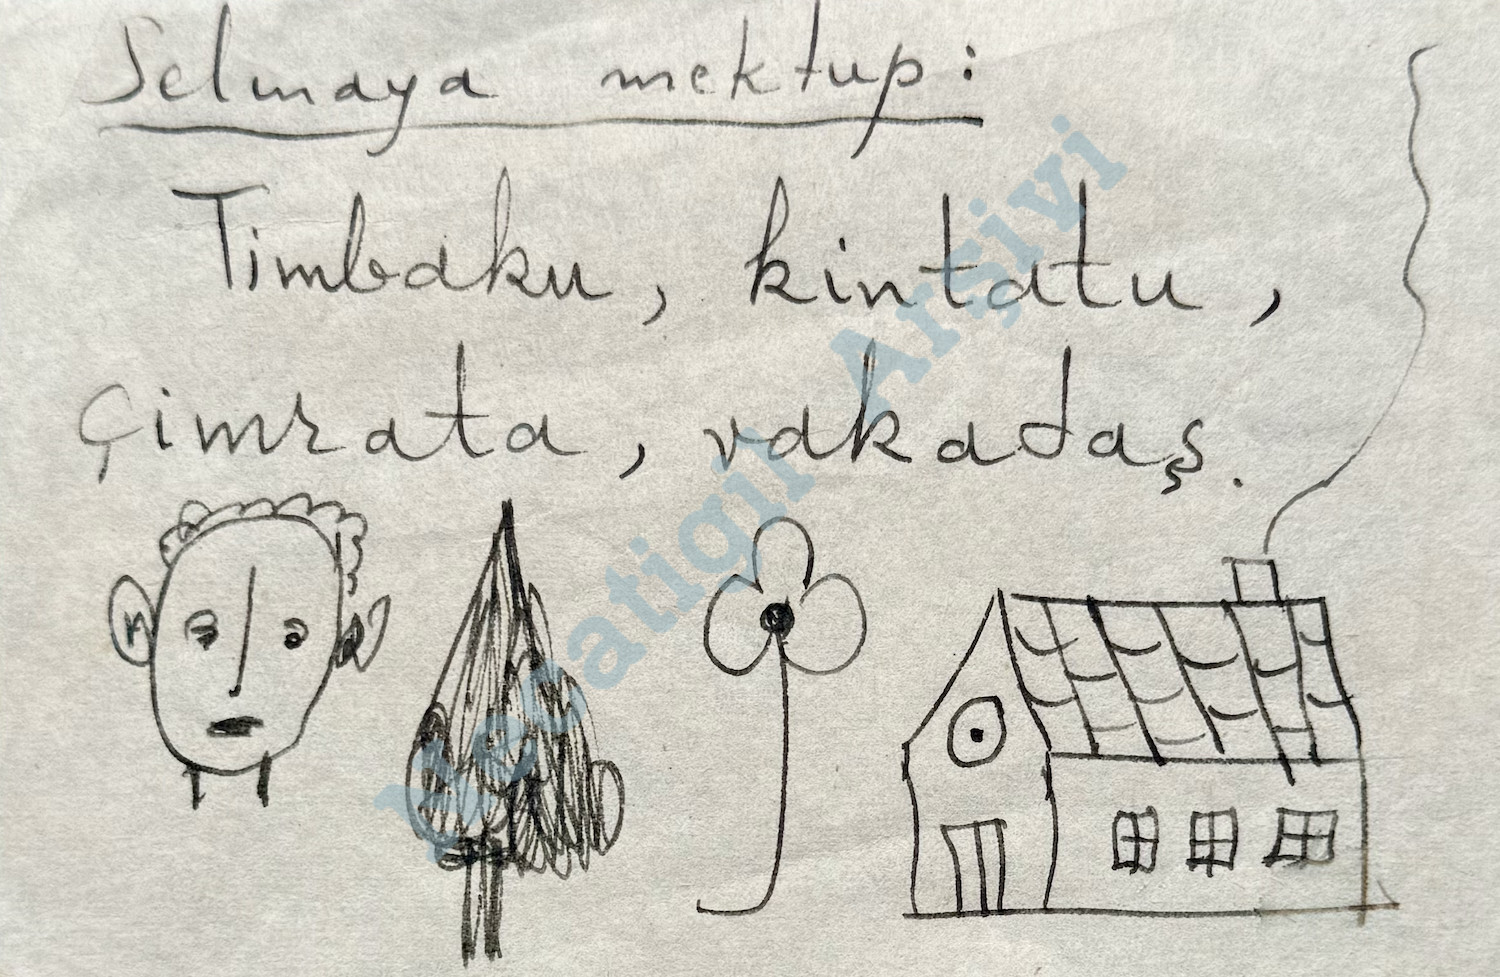 Selmaya mektup:
Timbaku, kintatu,
çimrata, vakadaş.
Necatigil Arşivi